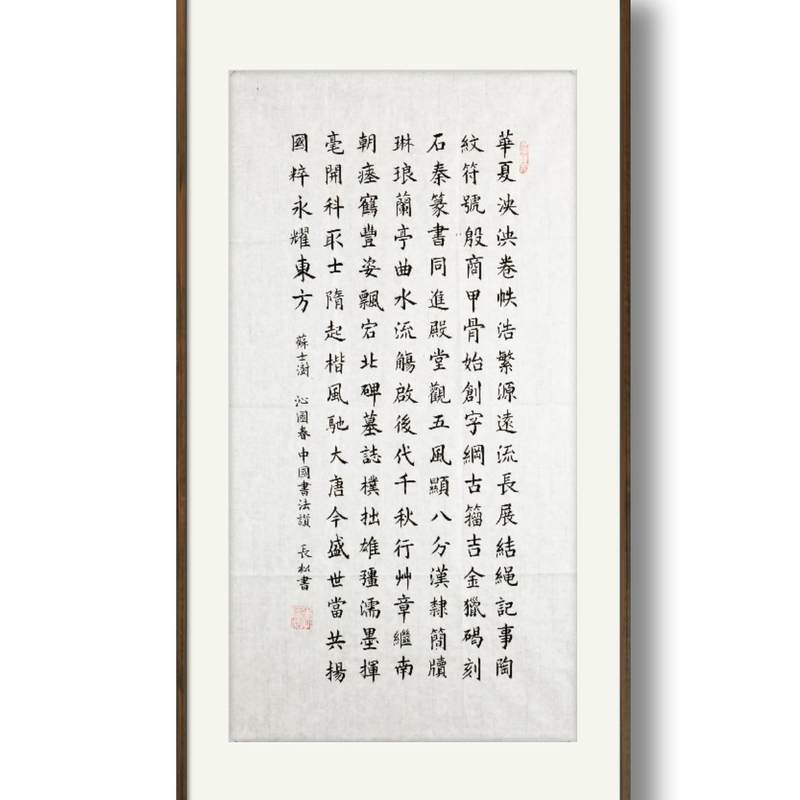 華夏泱泱卷帙浩繁源遠流長展結繩記事陶
紋符號殷商甲骨始創字綱古籀吉金獵碣刻
石秦篆書同進殿堂觀五風顯八分漢隸簡牘
琳琅蘭亭曲水流觴啟後代千秋行艸章繼南
朝瘞鶴豐姿飄宕北碑墓誌樸拙雄彊濡墨揮
毫開科取士隋起楷風馳大唐今盛世當共揚
國粹永耀東方
蘇士澍 沁園春 中國書法讚 長松書